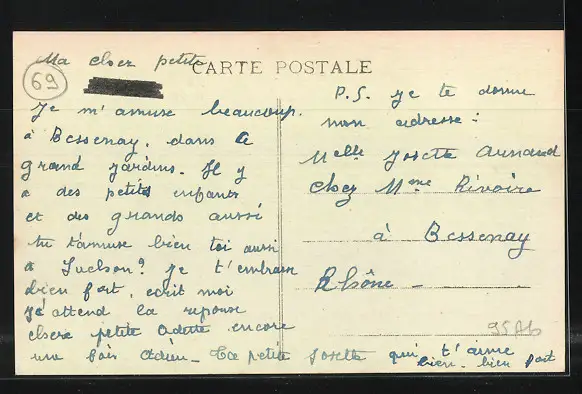 Ma cher petite
CARTE POSTALE
69
Je m'amuse beaucoup.
à Bessenay. dans le
grand jardins. Il y
a des petits enfants
et des grands aussi
tu t'amuse bien toi aussi
à ? Je t'embrasse
bien fort, ecrit moi
j'attend la reponse
chere petite Odette encore
une fois Adieu_ Ta petite Josette qui t'aime
bien. bien fort
P.S. je te donne
mon adresse :
Melle Josette Arnaud
chez Mme Rivoire
à Bessenay
Rhône _
95Ab